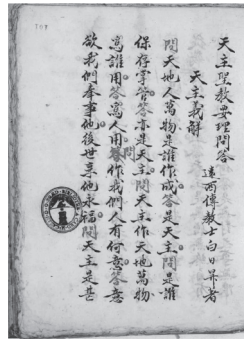 天主聖教要理問答
遠西傳教士白日昇著
天主義觧
問天地人萬物是誰作成答是天主問是誰
保存掌管答亦是天主問天主作天地萬物
爲誰用答爲人用問答作我們人有何意答意
欲我們奉事他後世享他永福問天主是甚